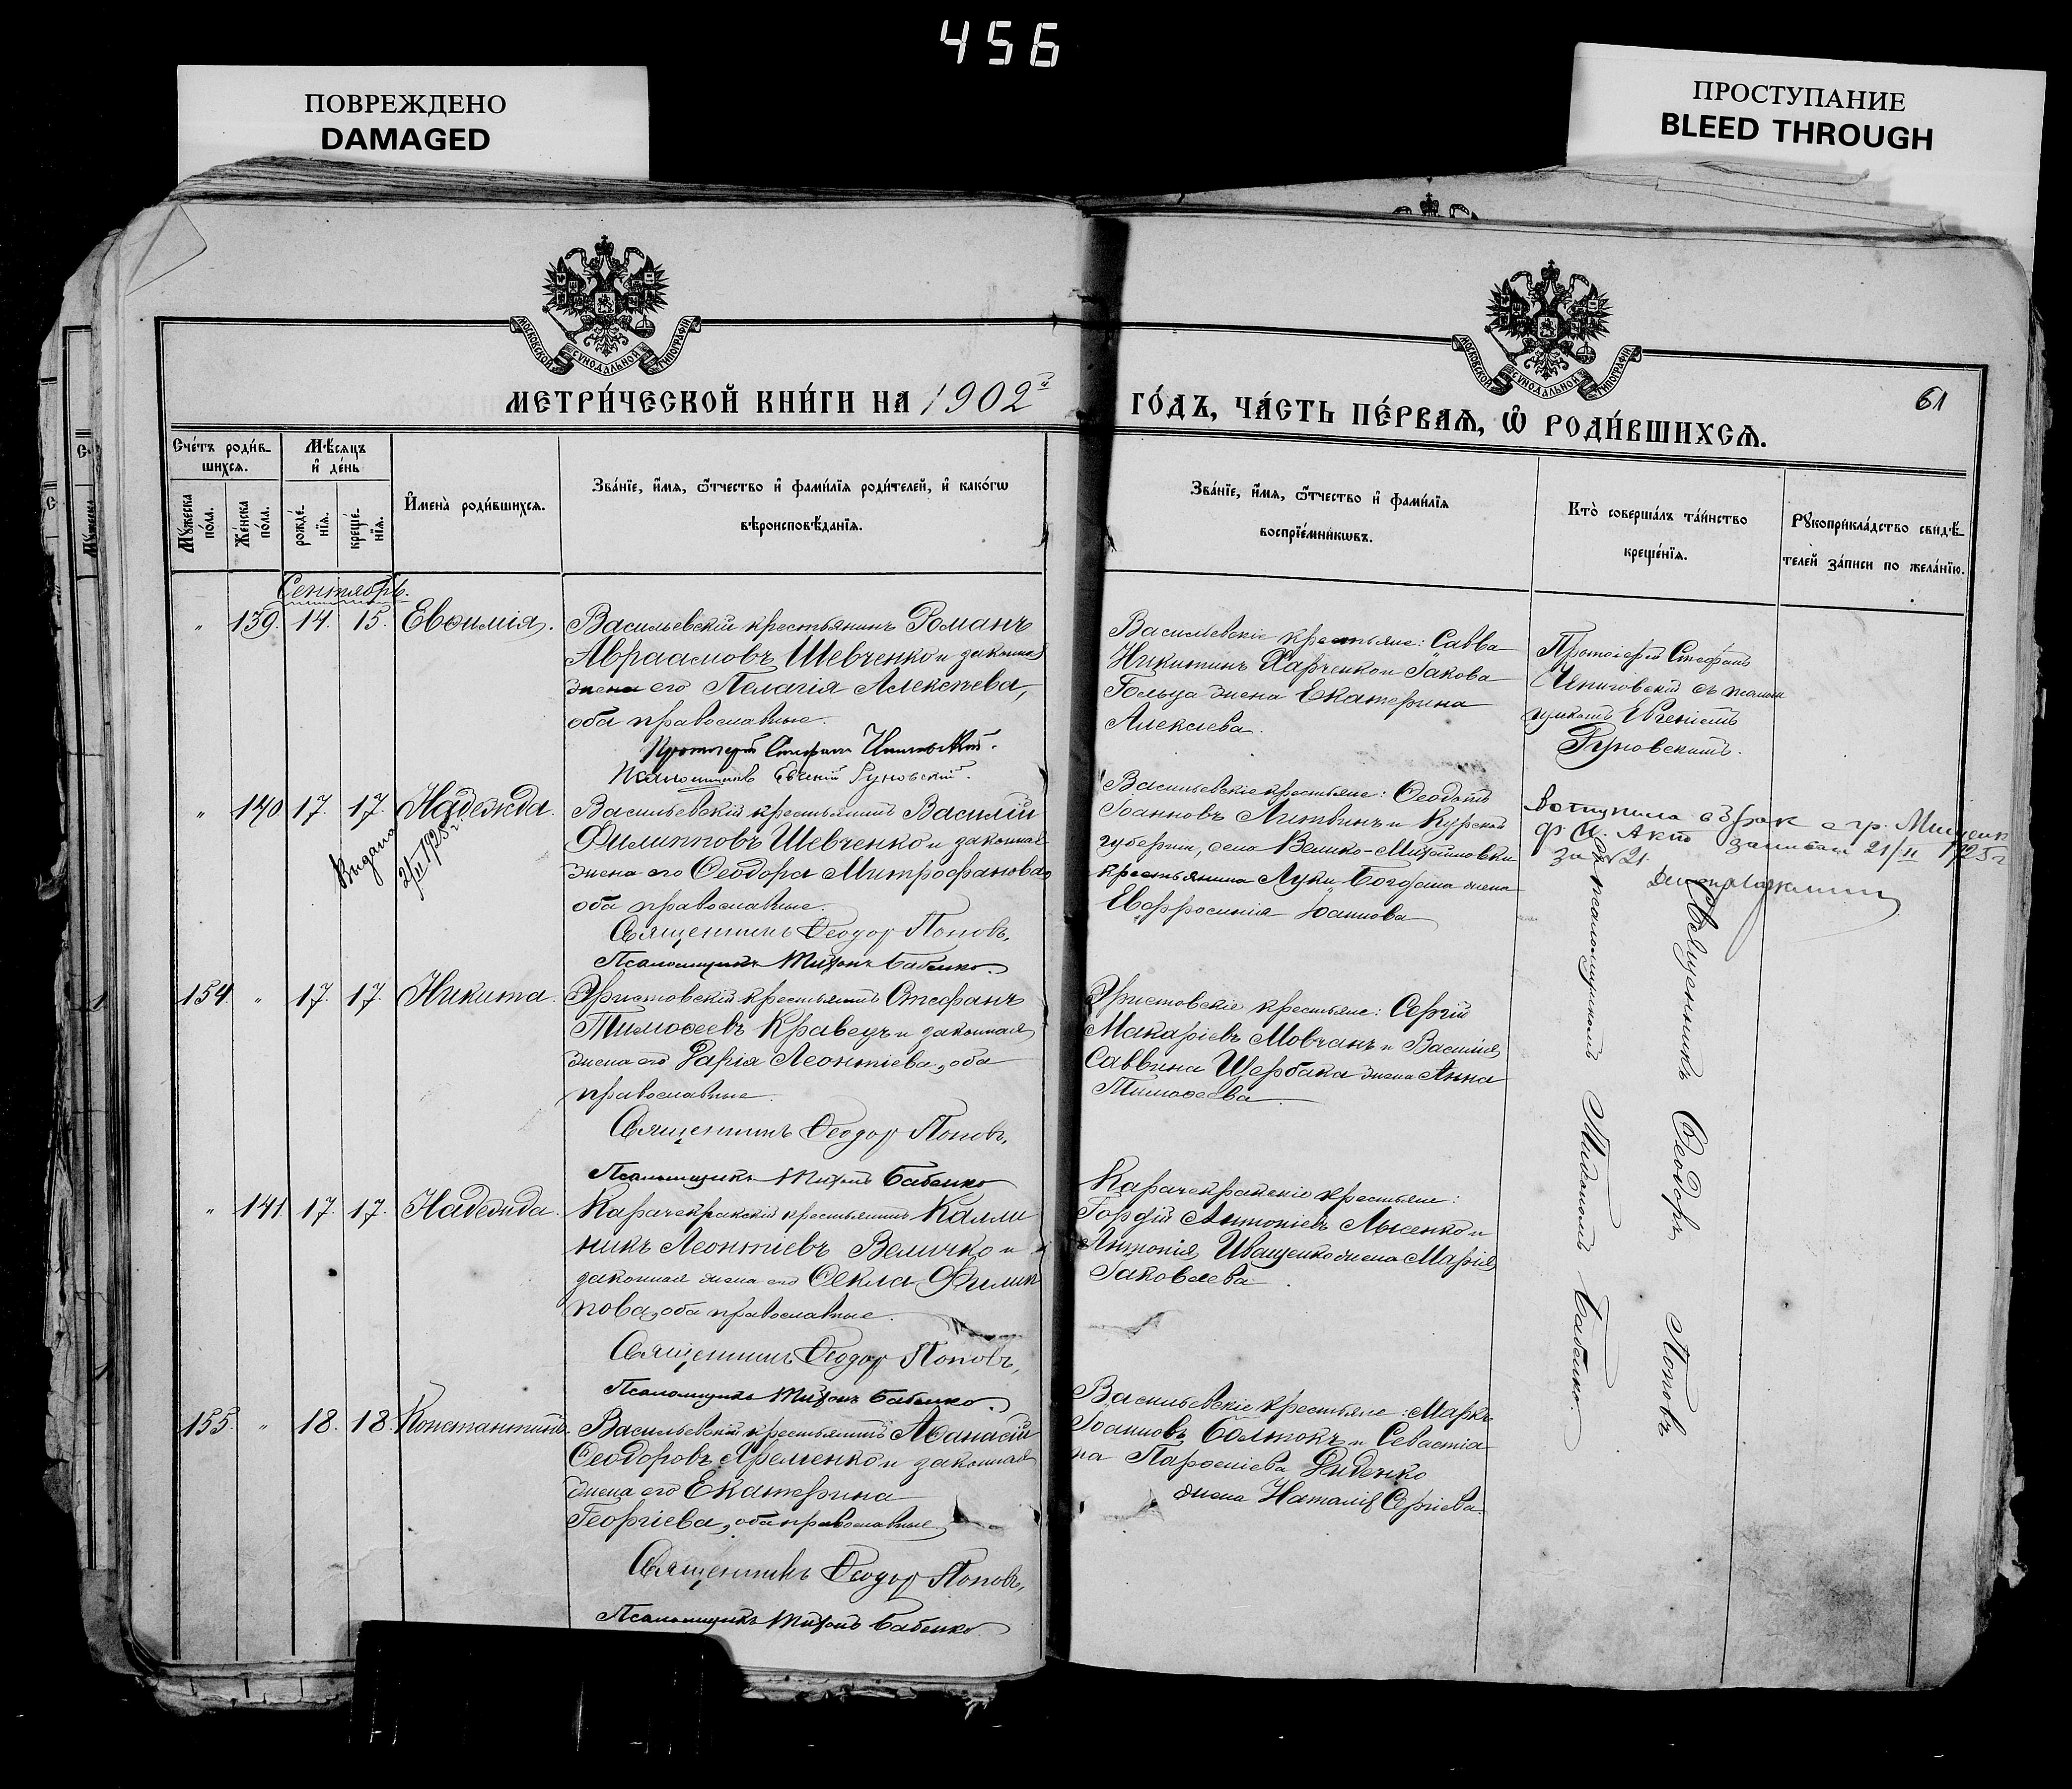 456
ПОВРЕЖДЕНО
DAMAGED
ПРОСТУПАНИЕ
BLEED THROUGH
МОСКОВСКОЙ СѴНОДАЛЬНОЙ ТИПОГРАФІИ
МОСКОВСКОЙ СѴНОДАЛЬНОЙ ТИПОГРАФІИ
МЕТРИ́ЧЕСКОЙ КНИ́ГИ НА 1902й
ГО́ДЪ, ЧА́СТЬ ПЕ́РВАѦ, Ѽ РОДИ́ВШИХСѦ.
61
Сче́тъ роди́в-
шихсѧ.
Мѣ́сѧцъ
и҆ де́нь
Мꙋ́жеска
по́ла.
Же́нска
по́ла.
рожде́-
нїѧ.
креще́-
нїѧ.
И҆мена̀ роди́вшихсѧ.
Зва́нїе, и҆́мѧ, ѻ҆́тчество и҆ фами́лїѧ роди́телей, и҆ како́гѡ
вѣроисповѣ́данїѧ.
Зва́нїе, и҆́мѧ, ѻ҆́тчество и҆ фами́лїѧ
воспрїе́мникѡвъ.
Кто̀ соверша́лъ та́инство
креще́нїѧ.
Рꙋкоприкла́дство свидѣ́-
телей за́писи по жела́нїю.
Сентябрь.
" 139. 14. 15. Евѳимія.
Васильевскій крестьянинъ Романъ
Авраамовъ Шевченко и законная
жена его Пелагія Алексѣева,
оба православные.
Протоіерей Стефанъ
Псаломщикъ Евгеній Руновскій.
Васильевскіе крестьяне: Савва
Никитинъ Харченко и Іакова
Гольца жена Екатерина
Алексѣева.
Протоіерей Стефанъ
съ псалом
щикомъ Евгеніемъ
Руновскимъ.
" 140. 17. 17. Надежда.
Выдана
21/II 1925 г.
Васильевскій крестьянинъ Василій
Филипповъ Шевченко и законная
жена его Ѳеодора Митрофанова,
оба православные.
Священникъ Ѳеодоръ Поповъ,
Псаломщикъ Тихонъ Бабенко.
Васильевскіе крестьяне: Ѳеодотъ
Іоанновъ Литвинъ и Курской
губерніи, села Велико-Михайловки
крестьянина Луки жена
Евфросинія Іоаннова
Вступила в брак с гр.
Акт записан 21/II 1925 г
за № 21
154. " 17. 17. Никита.
Христовскій крестьянинъ Стефанъ
Тимоѳеевъ Кравецъ и законная
жена его Дарія Леонтіева, оба
православные.
Священникъ Ѳеодоръ Поповъ,
Псаломщикъ Тихонъ Бабенко
Христовскіе крестьяне: Сергій
Макаріевъ Мовчанъ и Василія
Саввина Щербака жена Анна
Тимоѳеева
" 141. 17. 17. Надежда.
Карачекракскій крестьянинъ Калли
никъ Леонтіевъ Величко и
законная жена его Ѳекла Филип
пова, оба православные.
Священникъ Ѳеодоръ Поповъ,
Псаломщикъ Тихонъ Бабенко.
Карачекракскіе крестьяне:
Гордій Антоніевъ Лысенко и
Антонія Иващенко жена Марія
Іаковлева
155. " 18. 18. Константинъ.
Васильевскій крестьянинъ Аѳанасій
Ѳеодоровъ Яременко и законная
жена его Екатерина
Георгіева, оба православные
Священникъ Ѳеодоръ Поповъ,
Псаломщикъ Тихонъ Бабенко
Васильевскіе крестьяне: Маркъ
Іоанновъ Болтокъ и Севастіа
на Парѳеніева Диденко
жена Наталія Сергіева
Священникъ Ѳеодоръ Поповъ
съ псаломщикомъ Тихономъ Бабенко.